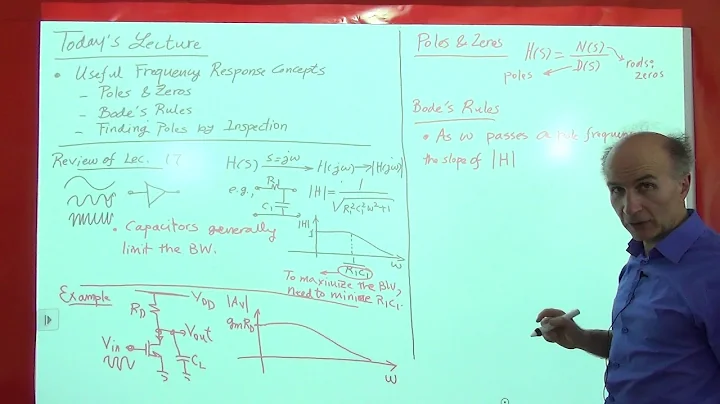 Today's Lecture
• Useful Frequency Response Concepts
– Poles & Zeros
– Bode's Rules
– Finding Poles by Inspection
Review of Lec. 17
H(s) s=jω → H(jω) → |H(jω)|
e.g., R1 C1 |H| = 1 / √(R1²C1²ω²+1)
• Capacitors generally
limit the BW.
|H|
1
1/(R1C1)
ω
To maximize the BW,
need to minimize R1C1.
Example
VDD
RD
Vout
Vin
CL
|Av|
gmRD
ω
Poles & Zeros H(s) = N(s) / D(s)
roots: zeros
poles
Bode's Rules
• As ω passes a pole
the slope of |H|